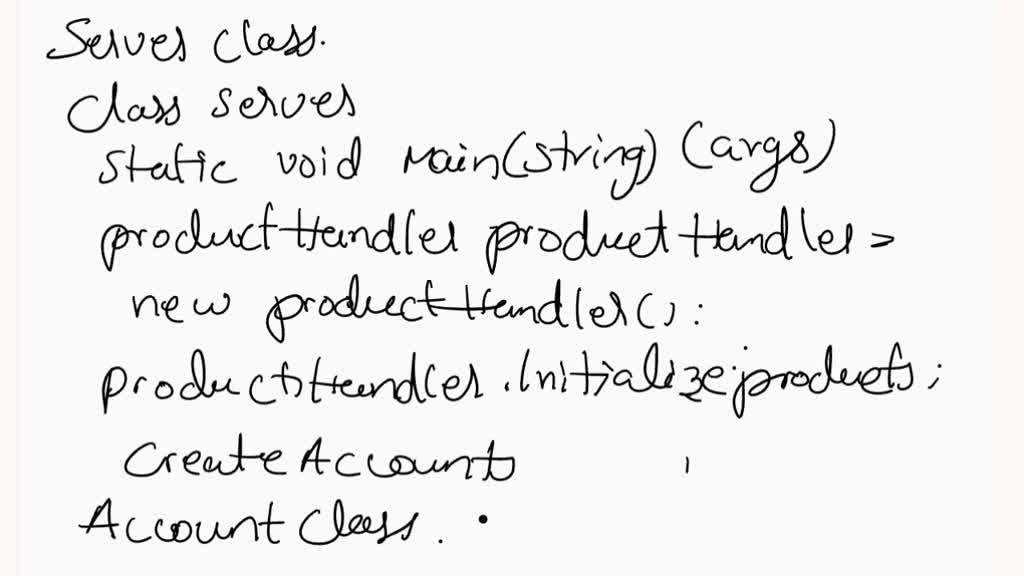 Server class.
Class server
static void Main(string) (args)
productHandler productHandler =
new productHandler():
productsHandler.Initialize products;
Create Accounts
Account Class.